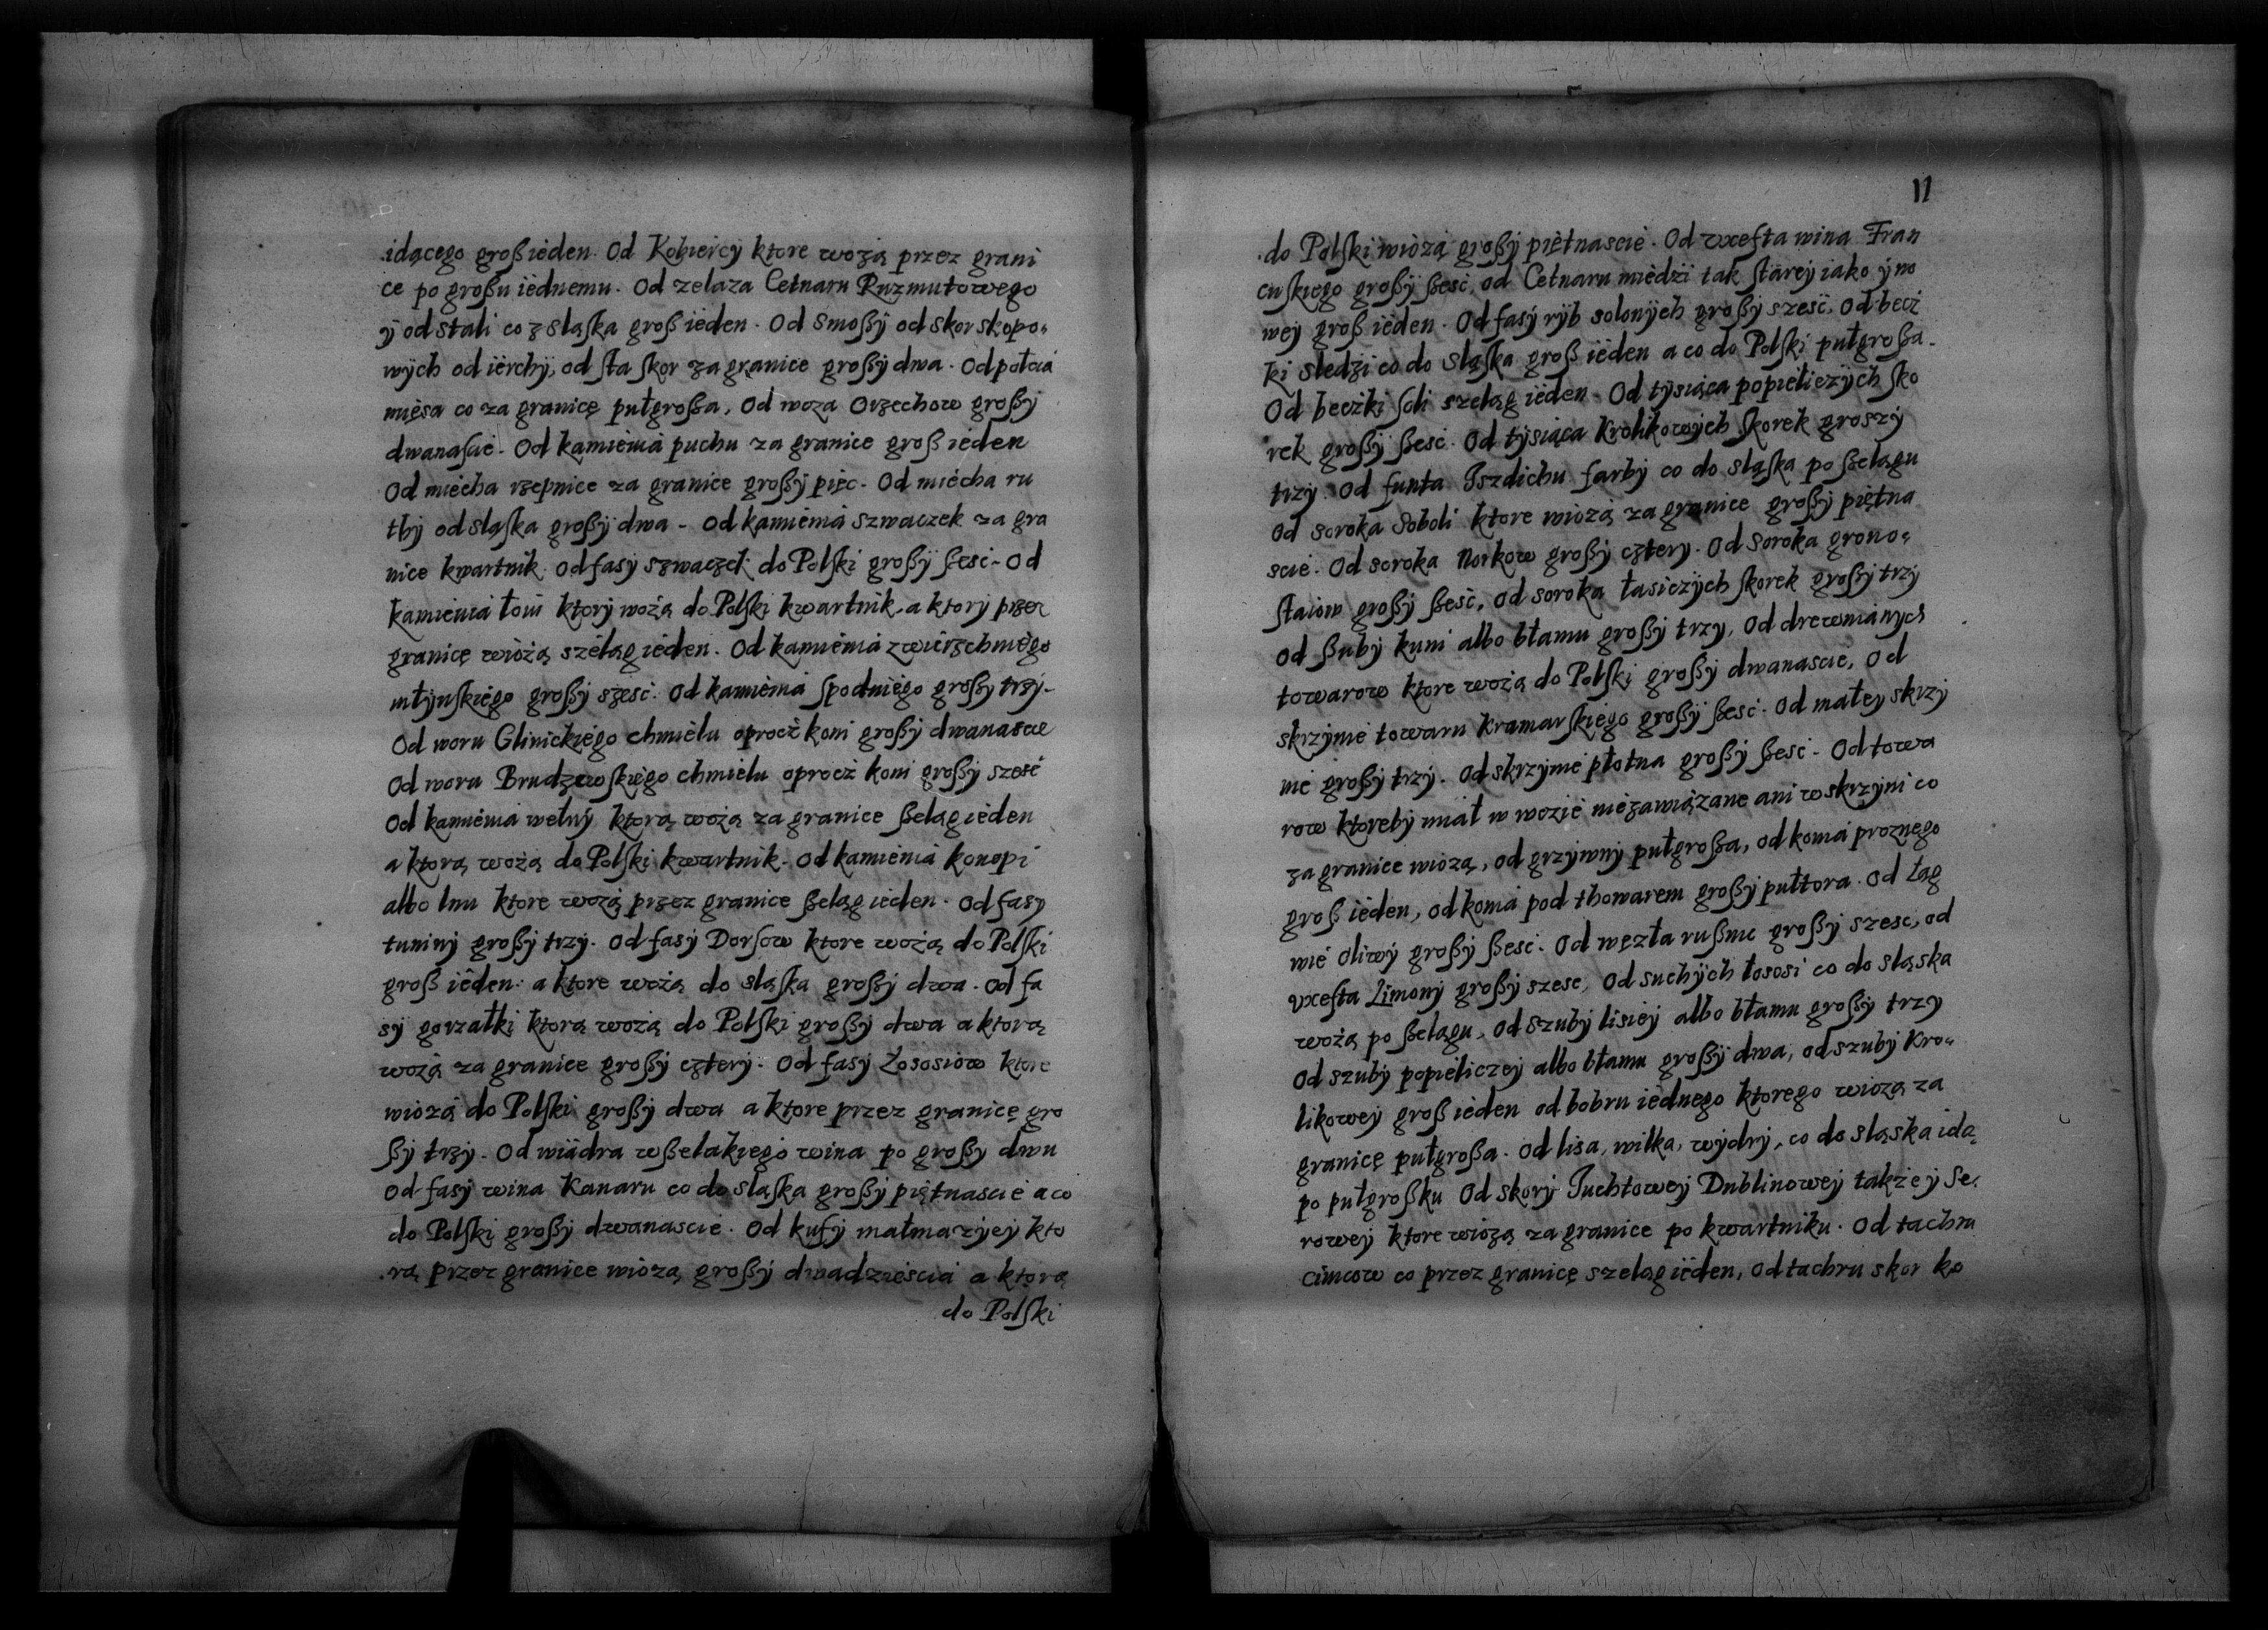 idącego groß ieden. Od Kobiercy ktore wożą przez grani
ce po großu iednemu. Od zelaza Cetnaru Ruzmutowego
y od stali co z sląska groß ieden. Od Smoßy od skor skopo-
wych od ierchy, od sta skor za granice großy dwa. Od połcia
mięsa co za granicę pułgroßa, Od woza Orzechow großy
dwanascie. Od kamienia puchu za granice groß ieden
Od miecha rzepnice za granice großy pięc. Od miecha ru
thy od slaska großy dwa. Od kamienia szwaczek za gra
nice kwartnik. Od fasy szwaczek do Polski großy ßesc. Od
kamienia łoiu ktory wożą do Polski kwartnik, a ktory przez
granicę wiożą szeląg ieden. Od kamienia zwierzchniego
młynskiego großy szesc. Od kamienia spodniego großy trzy.
Od woru Glinickiego chmielu oprocz koni großy dwanascie
Od woru Brudzewskiego chmielu oprocz koni großy szesc
Od kamienia wełny ktorą wożą za granice ßeląg ieden
a ktorą wożą do Polski kwartnik. Od kamienia konopi
albo lnu ktore wożą przez granice ßeląg ieden. Od fasy
tuniny großy trzy. Od fasy Dorsow ktore wożą do Polski
groß ieden: a ktore wożą do slaska großy dwa. Od fa
sy gorzałki ktorą wożą do Polski großy dwa a ktorą
wożą za granice großy cztery. Od fasy Łososiow ktore
wiozą do Polski großy dwa a ktore przez granicę gro
ßy trzy. Od wiadra wßelakiego wina po großy dwu
Od fasy wina Kanaru co do slaska großy piętnascie a co
do Polski großy dwanascie. Od kufy małmazyey kto
rą przez granice wiozą großy dwadziescia a ktorą
do Polski
11
do Polski wiozą großy piętnascie. Od vxefta wina Fran
cuskiego großy ßesc, od Cetnaru miedzi tak starey iako y no
wey groß ieden. Od fasy ryb solonych großy szesc. Od becz
ki sledzi co do sląska groß ieden a co do Polski pułgroßa.
Od beczki soli szeląg ieden. Od tysiąca popieliczych sko
rek großy ßesc. Od tysiąca Krolikowych skorek groszy
trzy. Od funta Iszdichu farby co do sląska po ßelągu
Od soroka Soboli ktore wiozą za granice großy piętna
scie. Od soroka Norkow großy cztery. Od soroka grono-
staiow großy ßesc, od soroka łasiczych skorek großy trzy
od ßuby kuni albo błamu großy trzy, Od drewnianych
towarow ktore wożą do Polski großy dwanascie, Od
skrzynie towaru kramarskiego großy ßesc. Od małey skrzy
nie großy trzy. Od skrzynie płotna großy ßesc. Od towa
row ktoreby miał w wozie niezawiązane ani w skrzyni co
za granice wiozą, od grzywny pułgroßa, od konia proznego
groß ieden, od konia pod thowarem großy pułtora. Od Łag
wie oliwy großy ßesc. Od węzła rußnic großy szesc, od
vxefta Limony großy szesc, Od suchych łososi co do sląska
wożą po ßelągu, Od szuby lisiey albo błamu großy trzy
Od szuby popieliczey albo błamu großy dwa, od szuby Kro-
likowey groß ieden od bobru iednego ktorego wiozą za
granicę pułgroßa. Od lisa, wilka, wydry, co do sląska idą
po pułgroßku Od skory Iuchtowey Dublinowey także y Se-
rowey ktore wiozą za granice po kwartniku. Od tachru
cimcow co przez granicę szeląg ieden, od tachru skor ko